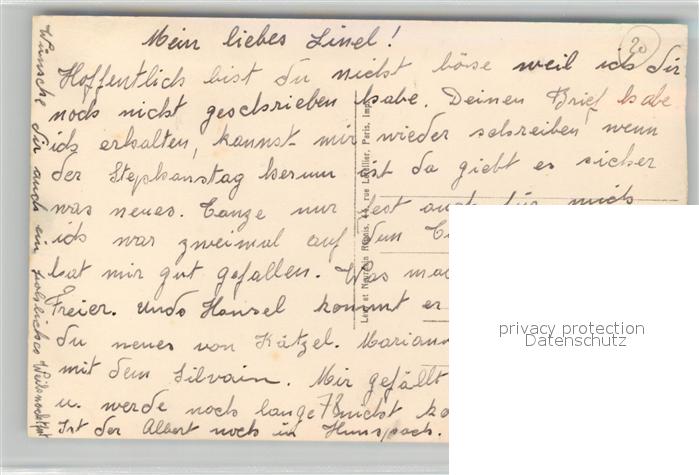 Mein liebes Linel!
20
Hoffentlich bist du nicht böse weil ich dir
noch nicht geschrieben habe. Deinen Brief habe
ich erhalten, kannst mir wieder schreiben, wenn
der Stephanstag herum ist da giebt es sicher
was neues. Tanze nur fest auch für mich
ich war zweimal auf dem
hat mir gut gefallen. Was
Freier. Undo Hansel kommt er
du neues von Kätzel.
mit dem Silvain. Mir gefällt
u. werde noch lange nicht
Ist der Albert noch in Hunspach.
Wünsche dir auch ein fröhliches Weihnachtsfest
privacy protection
Datenschutz